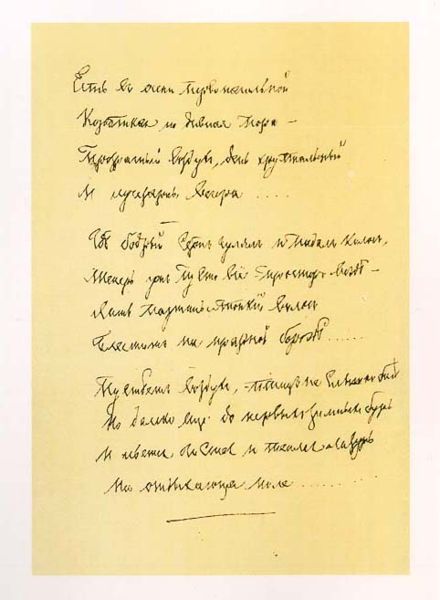 Есть въ осени первоначальной
Короткая но дивная пора –
Прозрачный воздухъ, день хрустальный
И лучезарны вечера ....
Гдѣ бодрый серпъ гулялъ и падалъ колосъ,
Теперь ужъ пусто все просторъ вездѣ –
Лишь паутины тонкій волосъ
Блеститъ на праздной бороздѣ ......
Пустѣетъ воздухъ, птицъ не слышно болѣ
Но далеко еще до первыхъ зимнихъ бурь
И льется и теплая лазурь
На отдыхающее поле ........